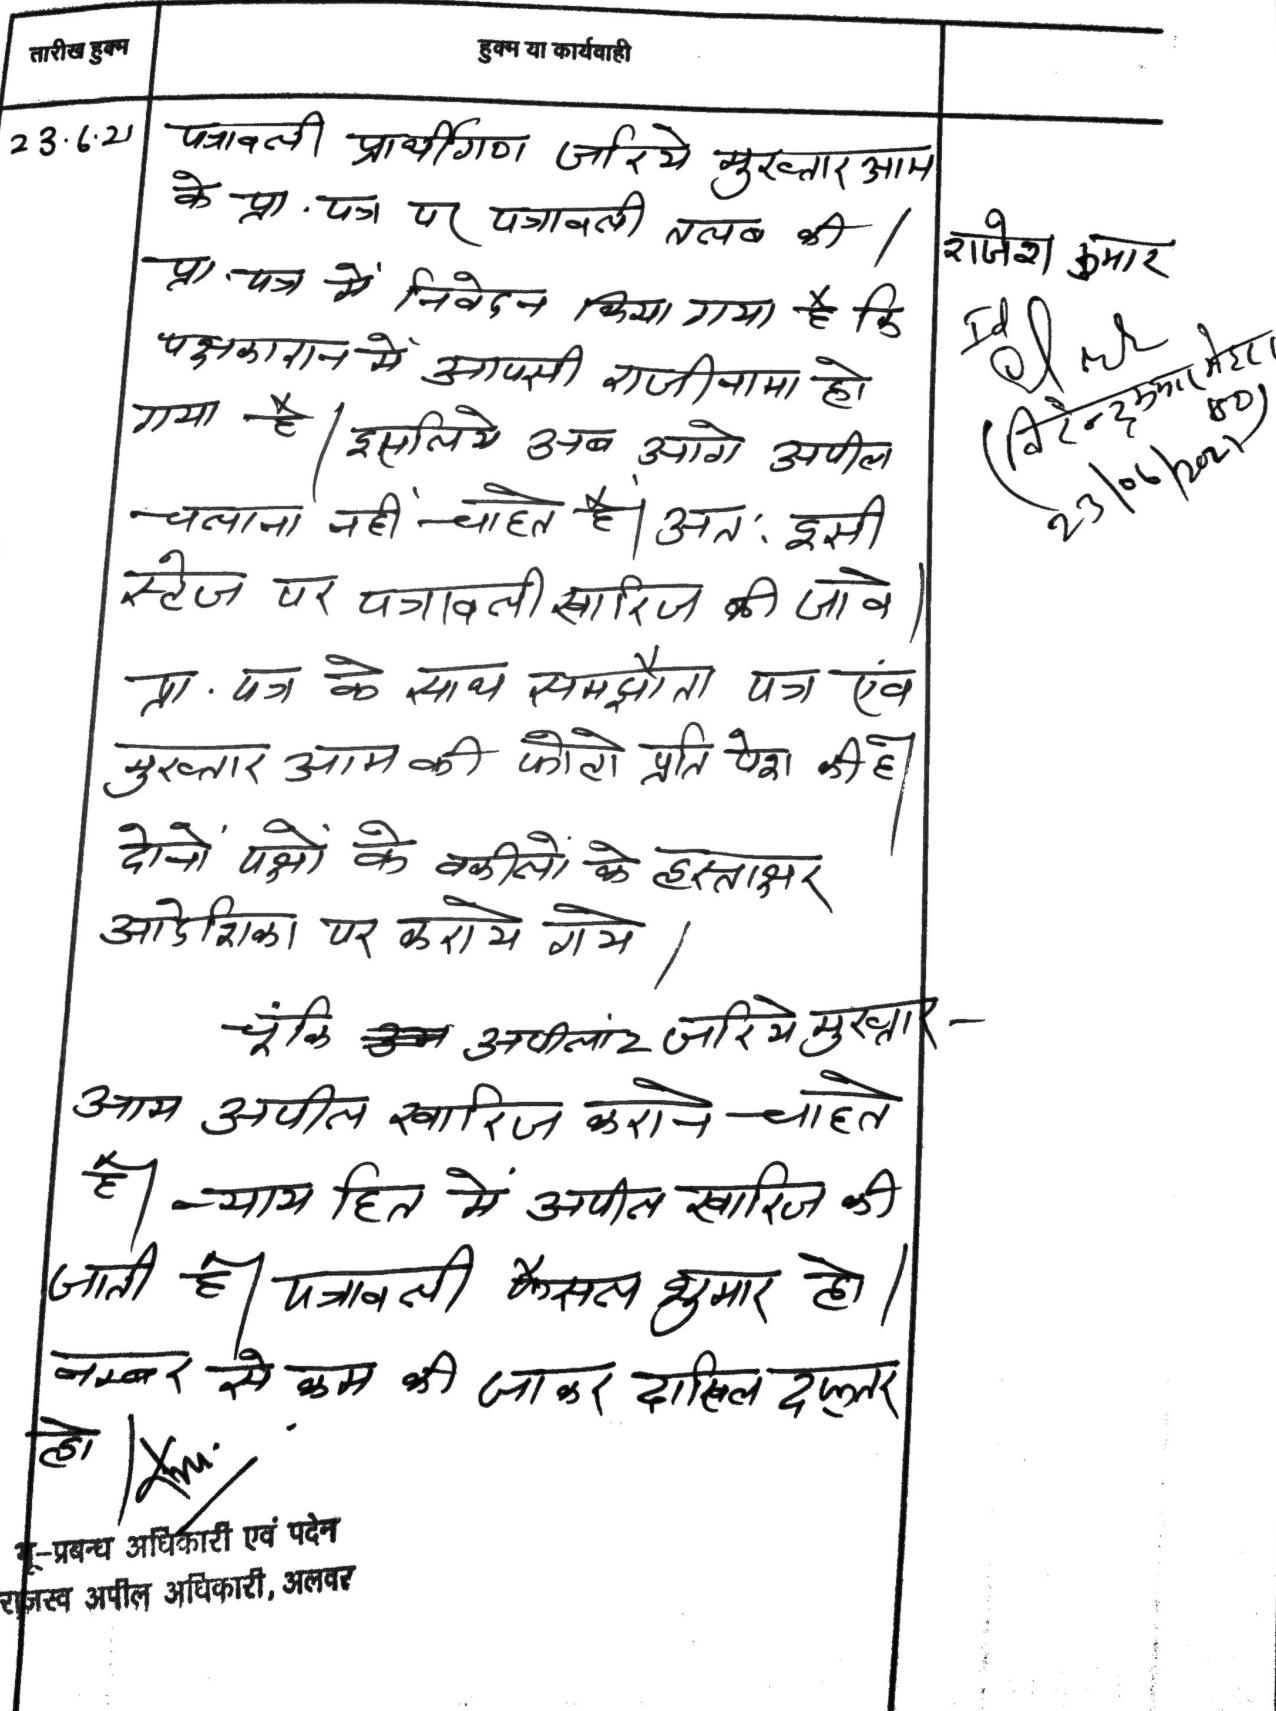 तारीख हुक्म
हुक्म या कार्यवाही
23.6.21
पत्रावली प्रार्थीगण जरिये मुख्तार आम
के प्रा. पत्र पर पत्रावली तलब की।
प्रा. पत्र में निवेदन किया गया है कि
पक्षकारान में आपसी राजीनामा हो
गया है। इसलिये अब आगे अपील
चलाना नहीं चाहते हैं। अतः इसी
स्टेज पर पत्रावली खारिज की जावे।
प्रा. पत्र के साथ समझौता पत्र एंव
मुख्तार आम की फोटो प्रति पेश की है।
दोनों पक्षों के वकीलों के हस्ताक्षर
आदेशिका पर कराये गये।
चूंकि अपीलांट जरिये मुख्तार-
आम अपील खारिज कराने चाहते
है। न्याय हित में अपील खारिज की
जाती है। पत्रावली फैसल शुमार हो।
नम्बर से कम की जाकर दाखिल दफ्तर
हो।
भू-प्रबन्ध अधिकारी एवं पदेन
राजस्व अपील अधिकारी, अलवर
राजेश कुमार
Id
23/06/2021